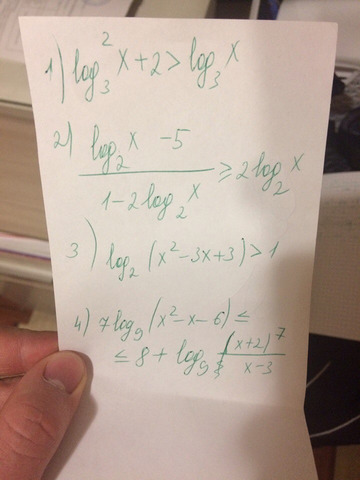 1) log₃² x + 2 > log₃ x
2) (log₂ x - 5) / (1 - 2 log₂ x) ≥ 2 log₂ x
3) log₂ (x² - 3x + 3) > 1
4) 7 log₉ (x² - x - 6) ≤
≤ 8 + log₉ (x+2)⁷ / (x-3)